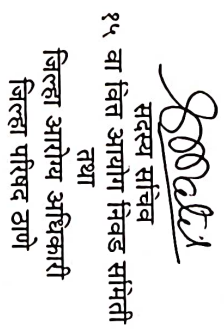 सदस्य सचिव
१५ वा वित्त आयोग निवड समिती
तथा
जिल्हा आरोग्य अधिकारी
जिल्हा परिषद ठाणे